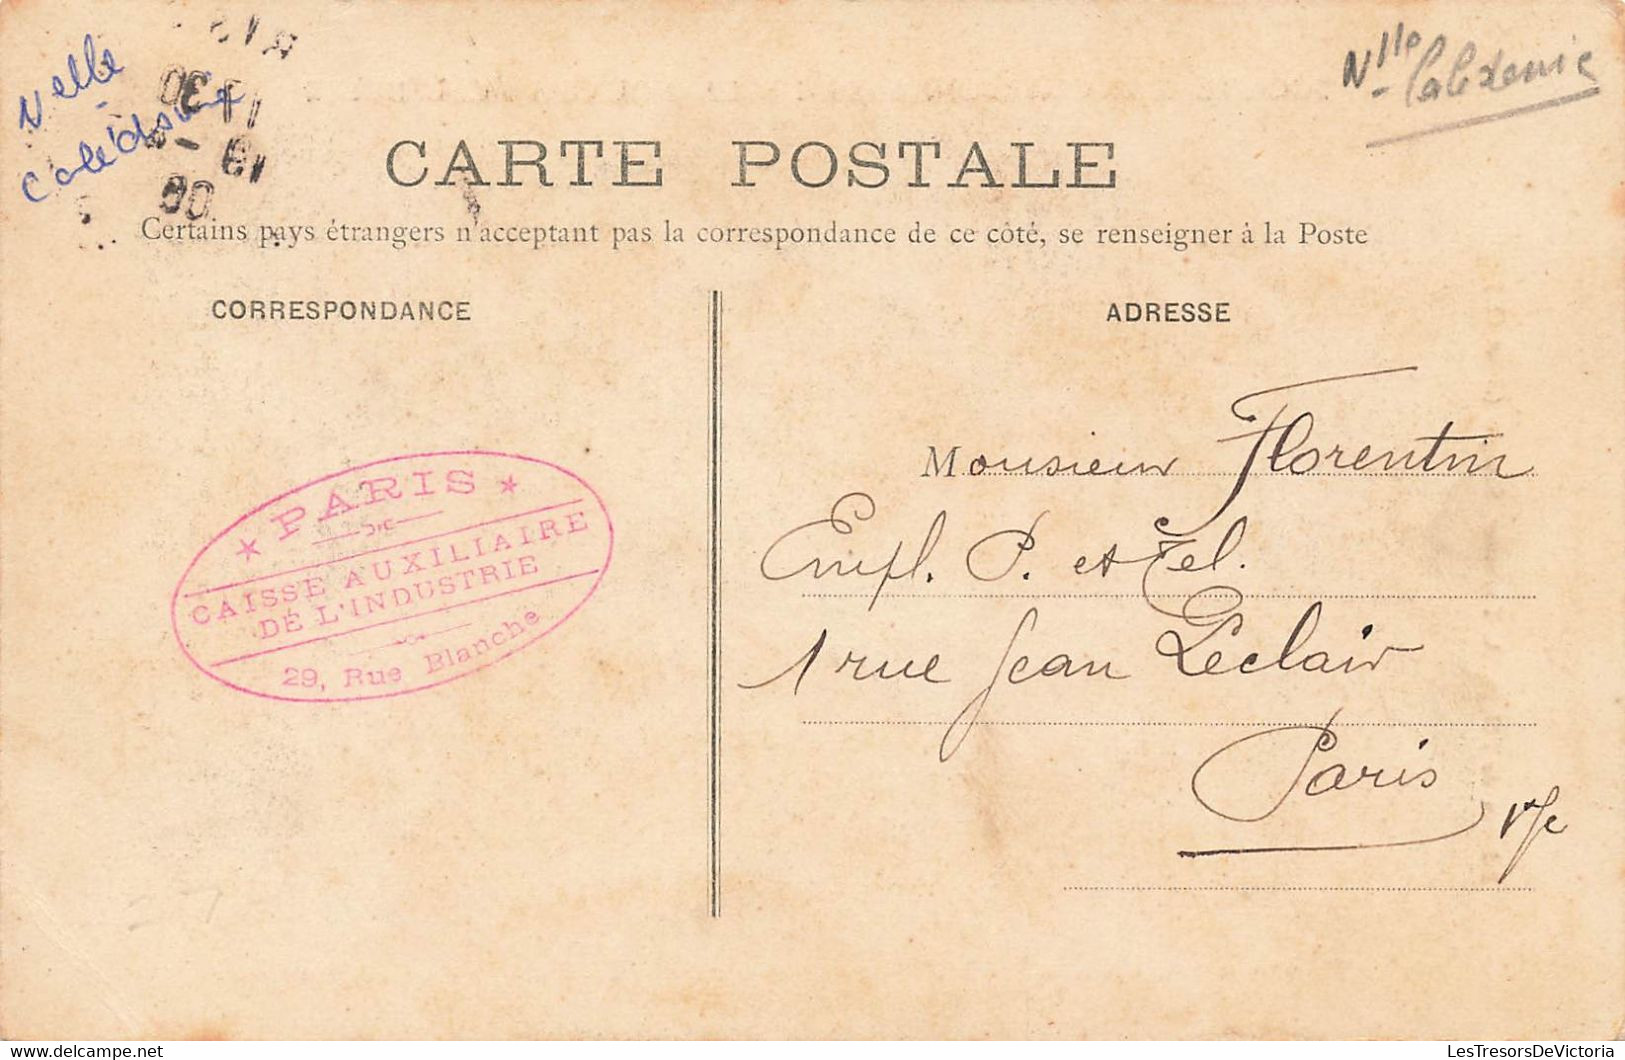 Nelle
Calédonie
Nlle Calédonie
11 30
19 -
06
CARTE POSTALE
Certains pays étrangers n'acceptant pas la correspondance de ce côté, se renseigner à la Poste
CORRESPONDANCE
ADRESSE
Monsieur Florentin
Empl. P. et Tel.
1 rue Jean Leclair
Paris
17e
★ PARIS ★
CAISSE AUXILIAIRE
DE L'INDUSTRIE
29, Rue Blanche
LesTresorsDeVictoria